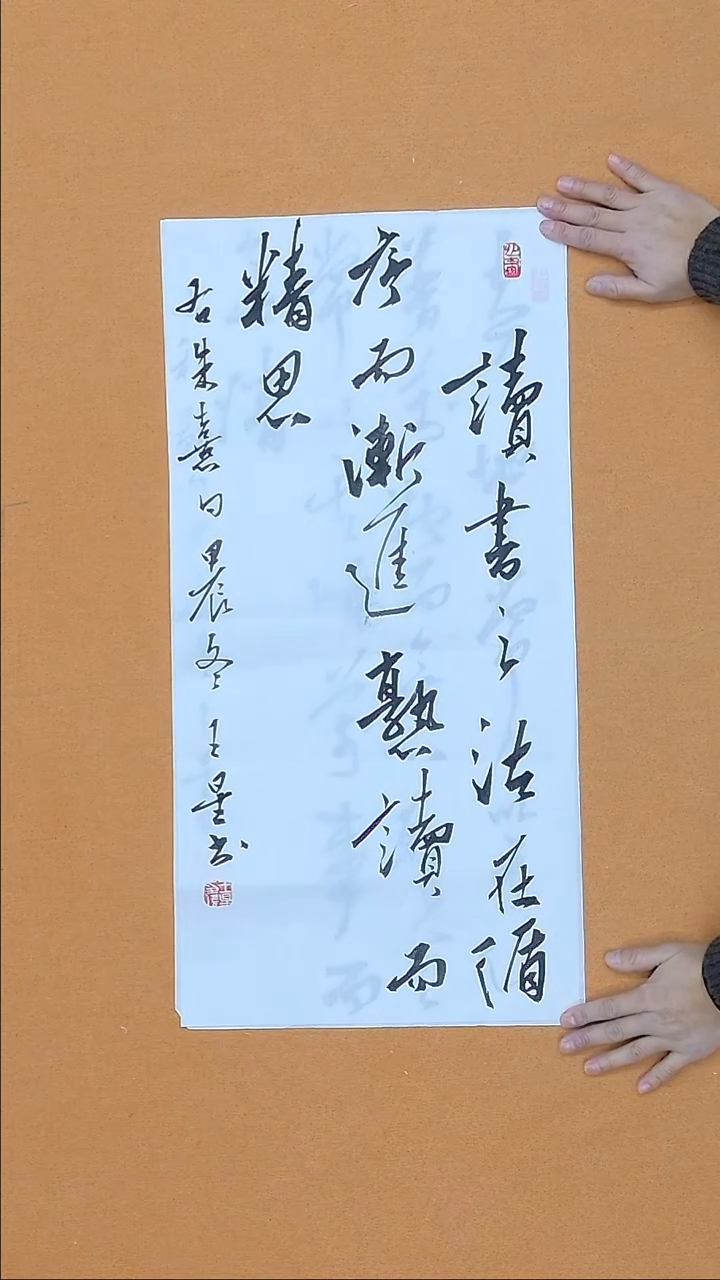 讀書之法在循
序而漸進熟讀而
精思
右朱熹句甲辰冬王星书